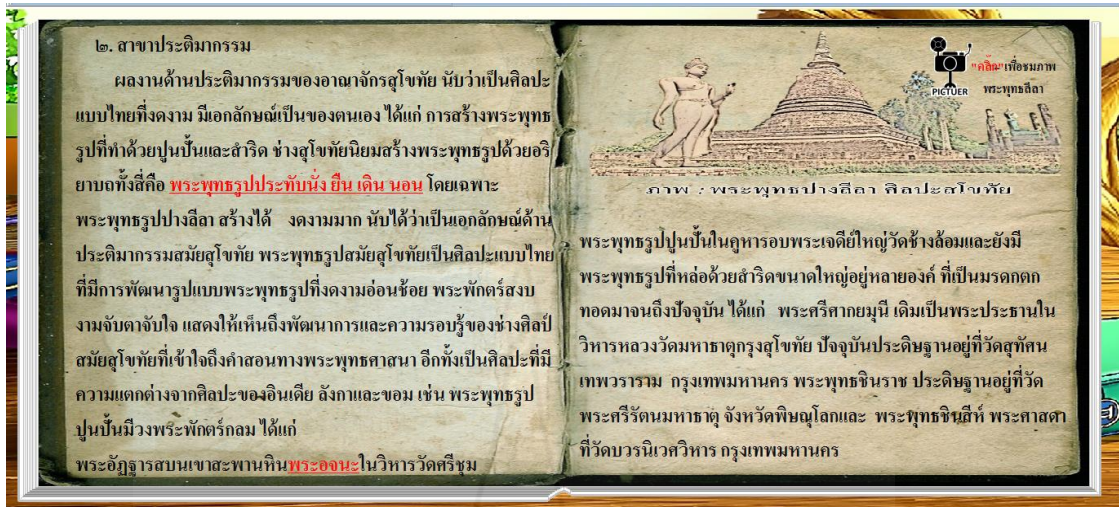 ๒. สาขาประติมากรรม
ผลงานด้านประติมากรรมของอาณาจักรสุโขทัย นับว่าเป็นศิลปะ
แบบไทยที่งดงาม มีเอกลักษณ์เป็นของตนเอง ได้แก่ การสร้างพระพุทธ
รูปที่ทำด้วยปูนปั้นและสำริด ช่างสุโขทัยนิยมสร้างพระพุทธรูปด้วยอริ
ยาบถทั้งสี่คือ พระพุทธรูปประทับนั่ง ยืน เดิน นอน โดยเฉพาะ
พระพุทธรูปปางลีลา สร้างได้ งดงามมาก นับได้ว่าเป็นเอกลักษณ์ด้าน
ประติมากรรมสมัยสุโขทัย พระพุทธรูปสมัยสุโขทัยเป็นศิลปะแบบไทย
ที่มีการพัฒนารูปแบบพระพุทธรูปที่งดงามอ่อนช้อย พระพักตร์สงบ
งามจับตาจับใจ แสดงให้เห็นถึงพัฒนาการและความรอบรู้ของช่างศิลป์
สมัยสุโขทัยที่เข้าใจถึงคำสอนทางพระพุทธศาสนา อีกทั้งเป็นศิลปะที่มี
ความแตกต่างจากศิลปะของอินเดีย ลังกาและขอม เช่น พระพุทธรูป
ปูนปั้นมีวงพระพักตร์กลม ได้แก่
พระอัฏฐารสบนเขาสะพานหินพระอจนะในวิหารวัดศรีชุม
"คลิ๊ก"เพื่อชมภาพ
พระพุทธลีลา
PICTUER
ภาพ : พระพุทธปางลีลา ศิลปะสุโขทัย
พระพุทธรูปปูนปั้นในคูหารอบพระเจดีย์ใหญ่วัดช้างล้อมและยังมี
พระพุทธรูปที่หล่อด้วยสำริดขนาดใหญ่อยู่หลายองค์ ที่เป็นมรดกตก
ทอดมาจนถึงปัจจุบัน ได้แก่ พระศรีศากยมุนี เดิมเป็นพระประธานใน
วิหารหลวงวัดมหาธาตุกรุงสุโขทัย ปัจจุบันประดิษฐานอยู่ที่วัดสุทัศน
เทพวราราม กรุงเทพมหานคร พระพุทธชินราช ประดิษฐานอยู่ที่วัด
พระศรีรัตนมหาธาตุ จังหวัดพิษณุโลกและ พระพุทธชินสีห์ พระศาสดา
ที่วัดบวรนิเวศวิหาร กรุงเทพมหานคร